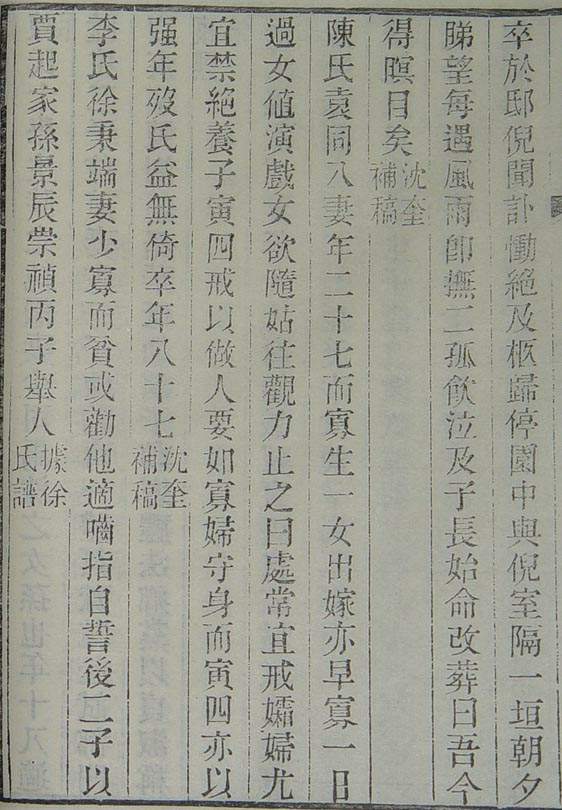 卒於邸倪聞訃慟絕及柩歸停園中與倪室隔一垣朝夕
睇望每遇風雨卽撫二孤飲泣及子長始命改葬曰吾今
得瞑目矣沈奎補稿
陳氏袁同八妻年二十七而寡生一女出嫁亦早寡一日
過女値演戲女欲隨姑往觀力止之曰處常宜戒孀婦尤
宜禁絕養子寅四戒以做人要如寡婦守身而寅四亦以
强年歿氏益無倚卒年八十七沈奎補稿
李氏徐秉端妻少寡而貧或勸他適嚙指自誓後二子以
賈起家孫景辰崇禎丙子舉人據徐氏譜